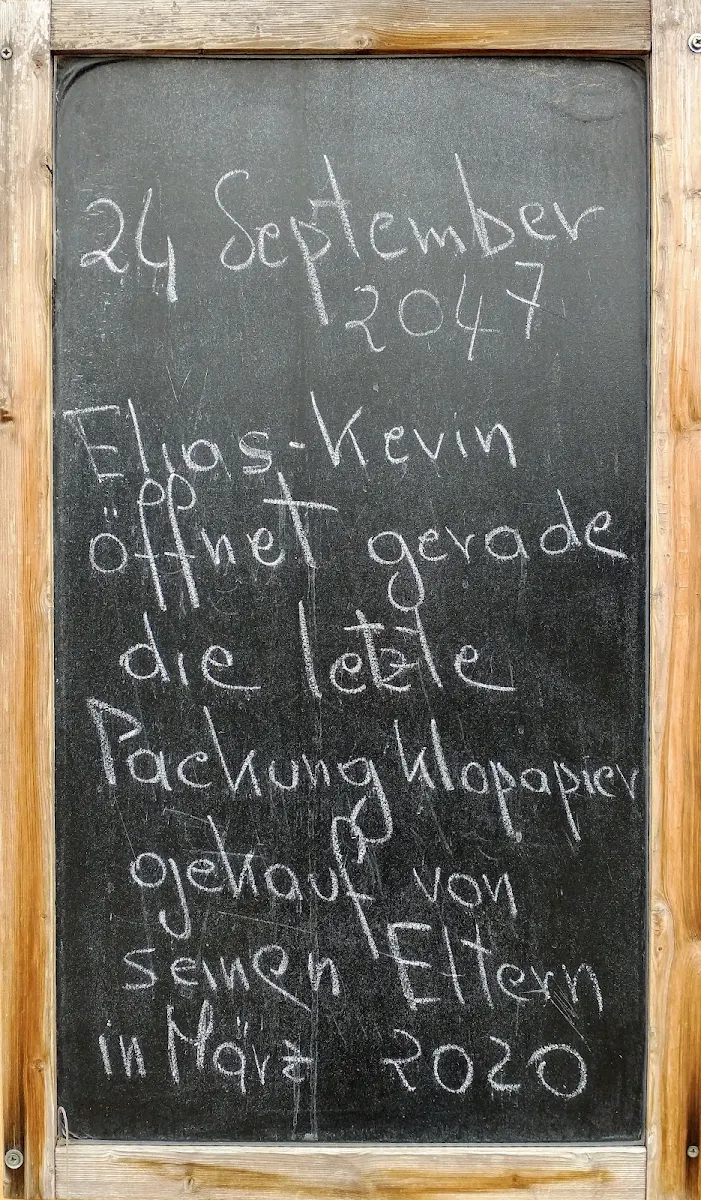 24 September
2047
Elias-Kevin
öffnet gerade
die letzte
Packung Klopapier
gekauf von
seinen Eltern
in März 2020